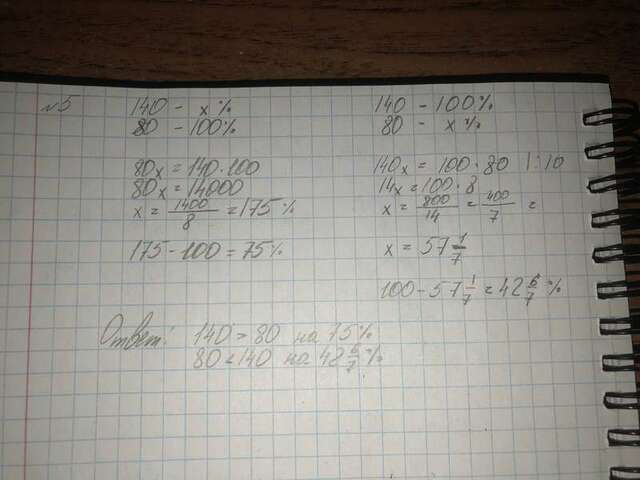 №5
140 - x%
80 - 100%
80x = 140·100
80x = 14000
x = 1400/8 = 175%
175 - 100 = 75%
140 - 100%
80 - x%
140x = 100·80 | :10
14x = 100·8
x = 800/14 = 400/7 =
x = 57 1/7
100 - 57 1/7 = 42 6/7 %
Ответ: 140 > 80 на 75%
80 < 140 на 42 6/7 %